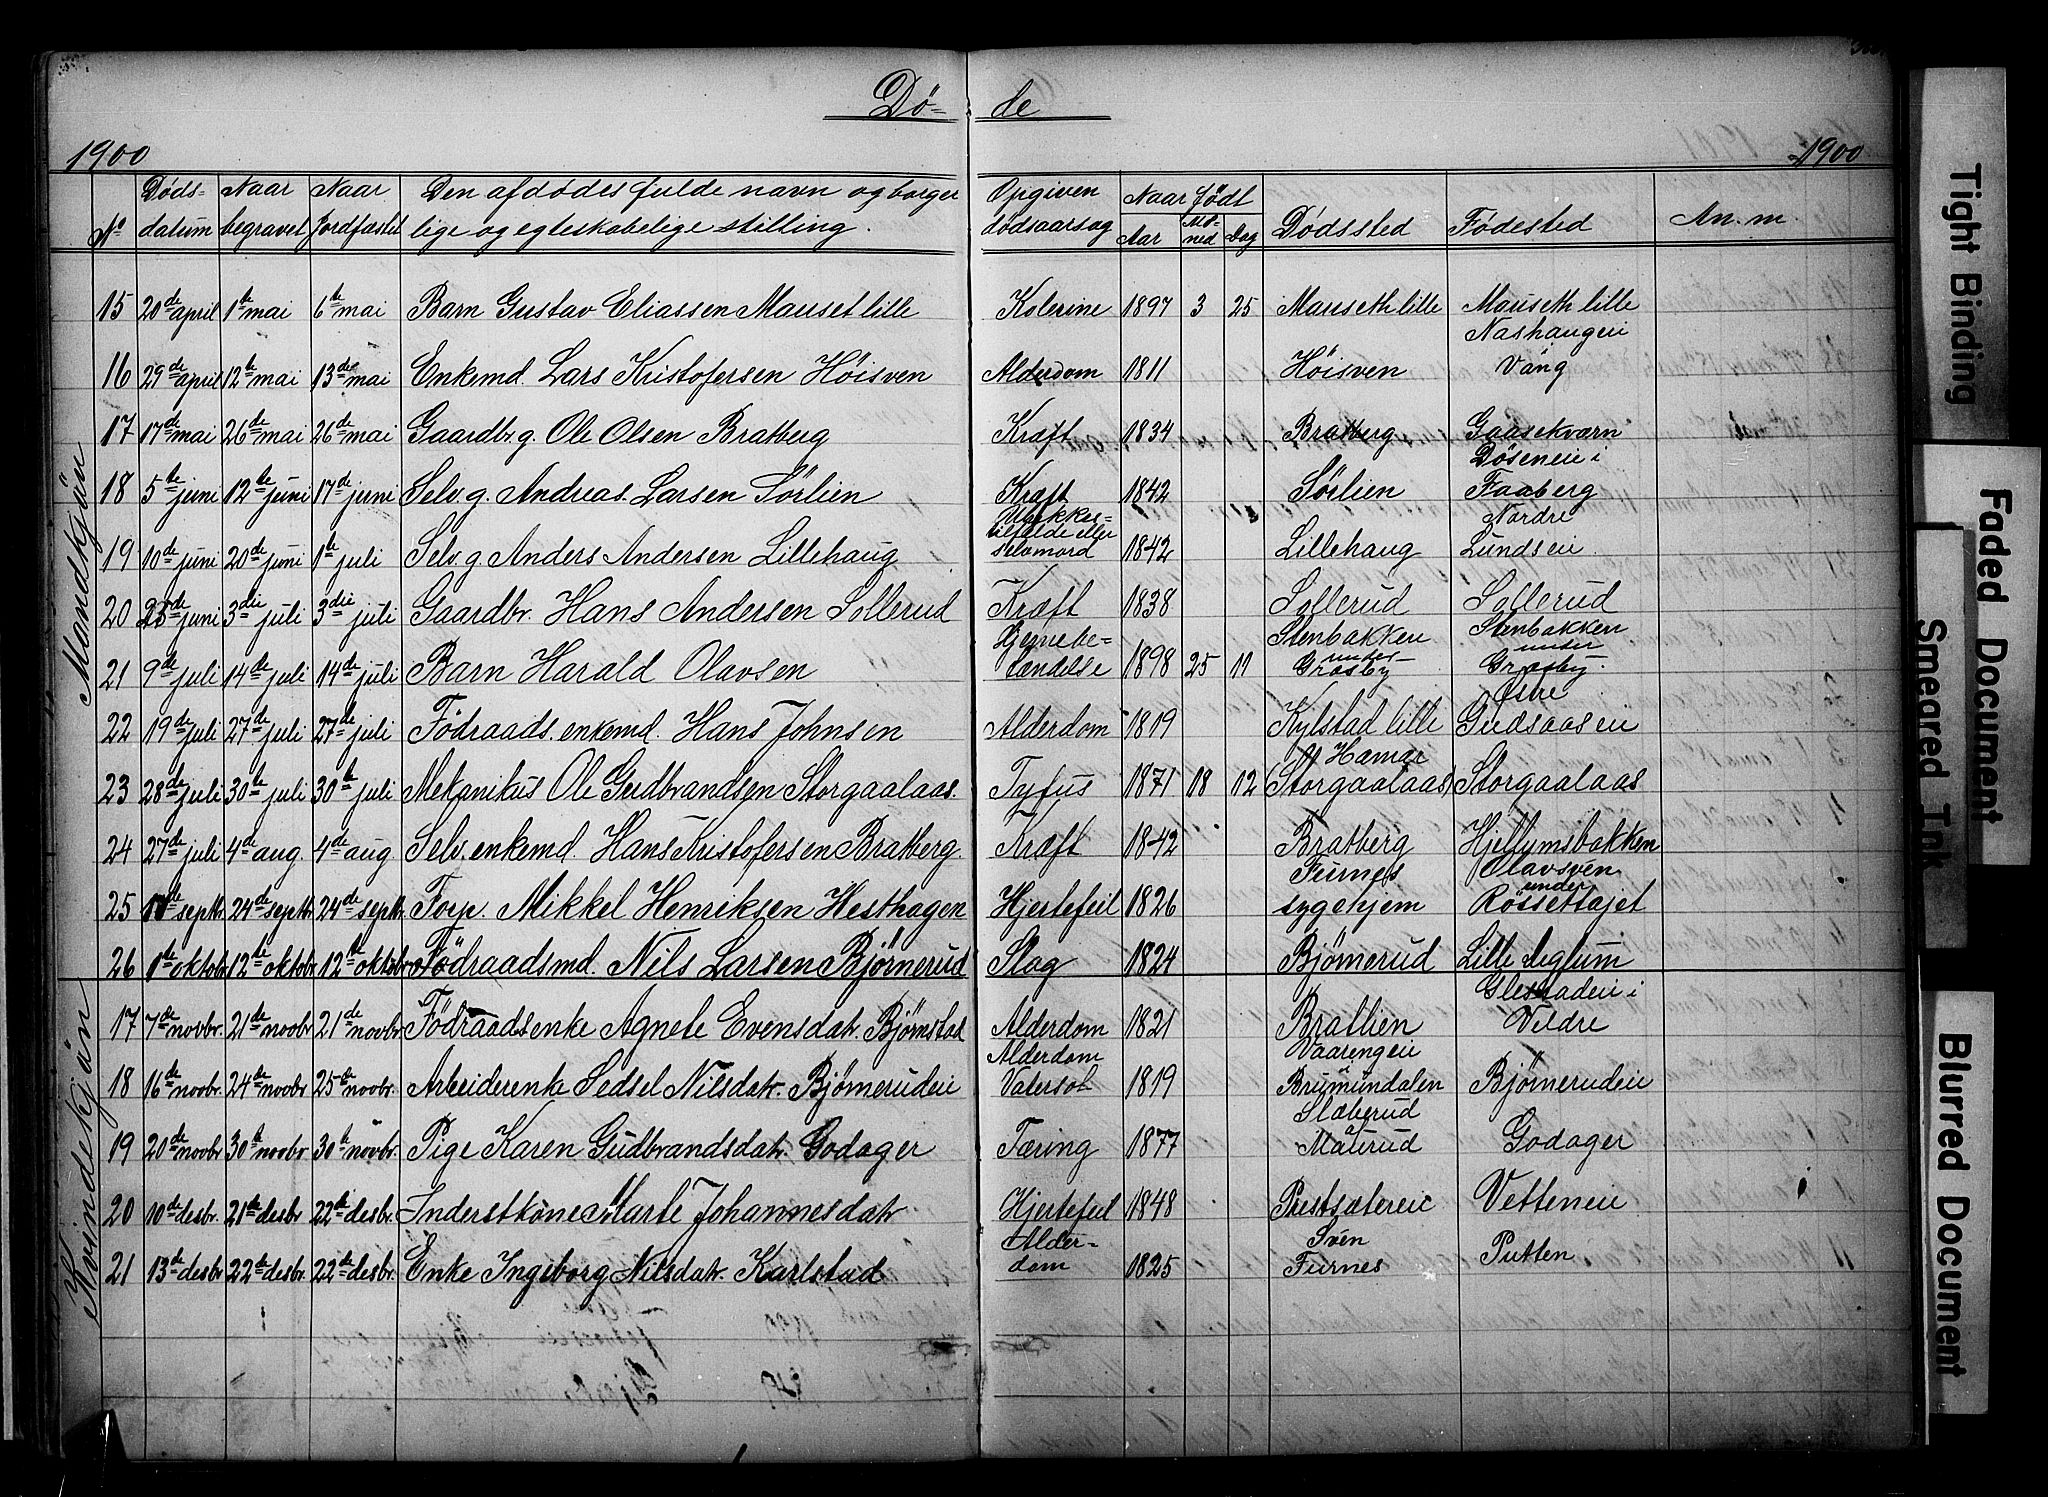 Dø- de
1900 1900
No Døds-datum Naar begravet Naar Jordfæstet Den afdødes fulde navn og borgerlige og egteskabelige stilling. Opgiven dødsaarsag Naar født Aar Maaned Dag Dødssted Fødested An. m.
Mandkjøn
15 20de april 1te mai 6te mai Barn Gustav Eliassen Mauset lille Kolerine 1897 3 25 Mauseth lille Mauseth lille
16 29de april 12te mai 13de mai Enkemd. Lars Kristofersen Høisven Alderdom 1811 Høisven Nashaugen Vang
17 17de mai 26de mai 26de mai Gaardbr.g. Ole Olsen Bratberg Kræft 1834 Bratberg Gaasekværn
18 5te juni 12te juni 17de juni Selv.g. Andreas Larsen Sørlien Kræft 1842 Sørlien Døseneie i Faaberg
19 10de juni 20de juni 1te juli Selv.g. Anders Andersen Lillehaug Ulykkes-tilfælde eller selvmord 1842 Lillehaug Nordre Lundseie
20 23de juni 3die juli 3die juli Gaardbr. Hans Andersen Sollerud Kræft 1838 Sollerud Sollerud
21 9de juli 14de juli 14de juli Barn Harald Olavsen Hjernebe-tændelse 1898 25 11 Stenbakken under Græsby Stenbakken under Græsby.
22 19de juli 27de juli 27de juli Födraads.enkemd. Hans Johnsen Alderdom 1819 Kylstad lille Østre Gudsaaseie
23 28de juli 30te juli 30te juli Mekanikus Ole Gudbrandsen Storgaalaas. Tyfus 1871 18 12 Hamar (Storgaalaas) Storgaalaas
24 27de juli 4de aug. 4de aug. Selv.enkemd. Hans Kristofersen Bratberg. Kræft 1842 Bratberg Hjellumsbakken
25 17de septbr 24de septbr 24de septbr. Forp. Mikkel Henriksen Hesthagen Hjertefeil 1826 Furnes sygehjem Olavsven under Røssettajet
26 1te oktobr 12te oktobr 12te oktobr. Födraadsmd. Nils Larsen Bjørnerud Slag 1824 Bjørnerud Lille Deglum
Kvindekjøn
17 7de novbr. 21de novbr 21de novbr. Födraadsenke Agnete Evensdatr. Bjørnstad Alderdom 1821 Bratlien Glestadeie i Veldre
18 16de novbr. 24de novbr 25de novbr. Arbeiderenke Sedsel Nilsdatr. Bjørnerudeie Alderdom Vatersot 1819 Vaarengeie i Brumunddalen Bjørnerudeie
19 20de novbr 30te novbr 30te novbr. Pige Karen Gudbrandsdatr. Godager Tæring 1877 Slæberud Mätrud Godager
20 10de desbr. 21de desbr 22de desbr. Inderstkone Marte Johannesdatr Hjertefeil 1848 Prestsætereie Vetteneie
21 13de desbr 22de desbr. 22de desbr. Enke Ingeborg Nilsdatr. Karlstad Alder-dom 1825 Sven Furnes Putten
Tight Binding
Faded Document
Smeared Ink
Blurred Document